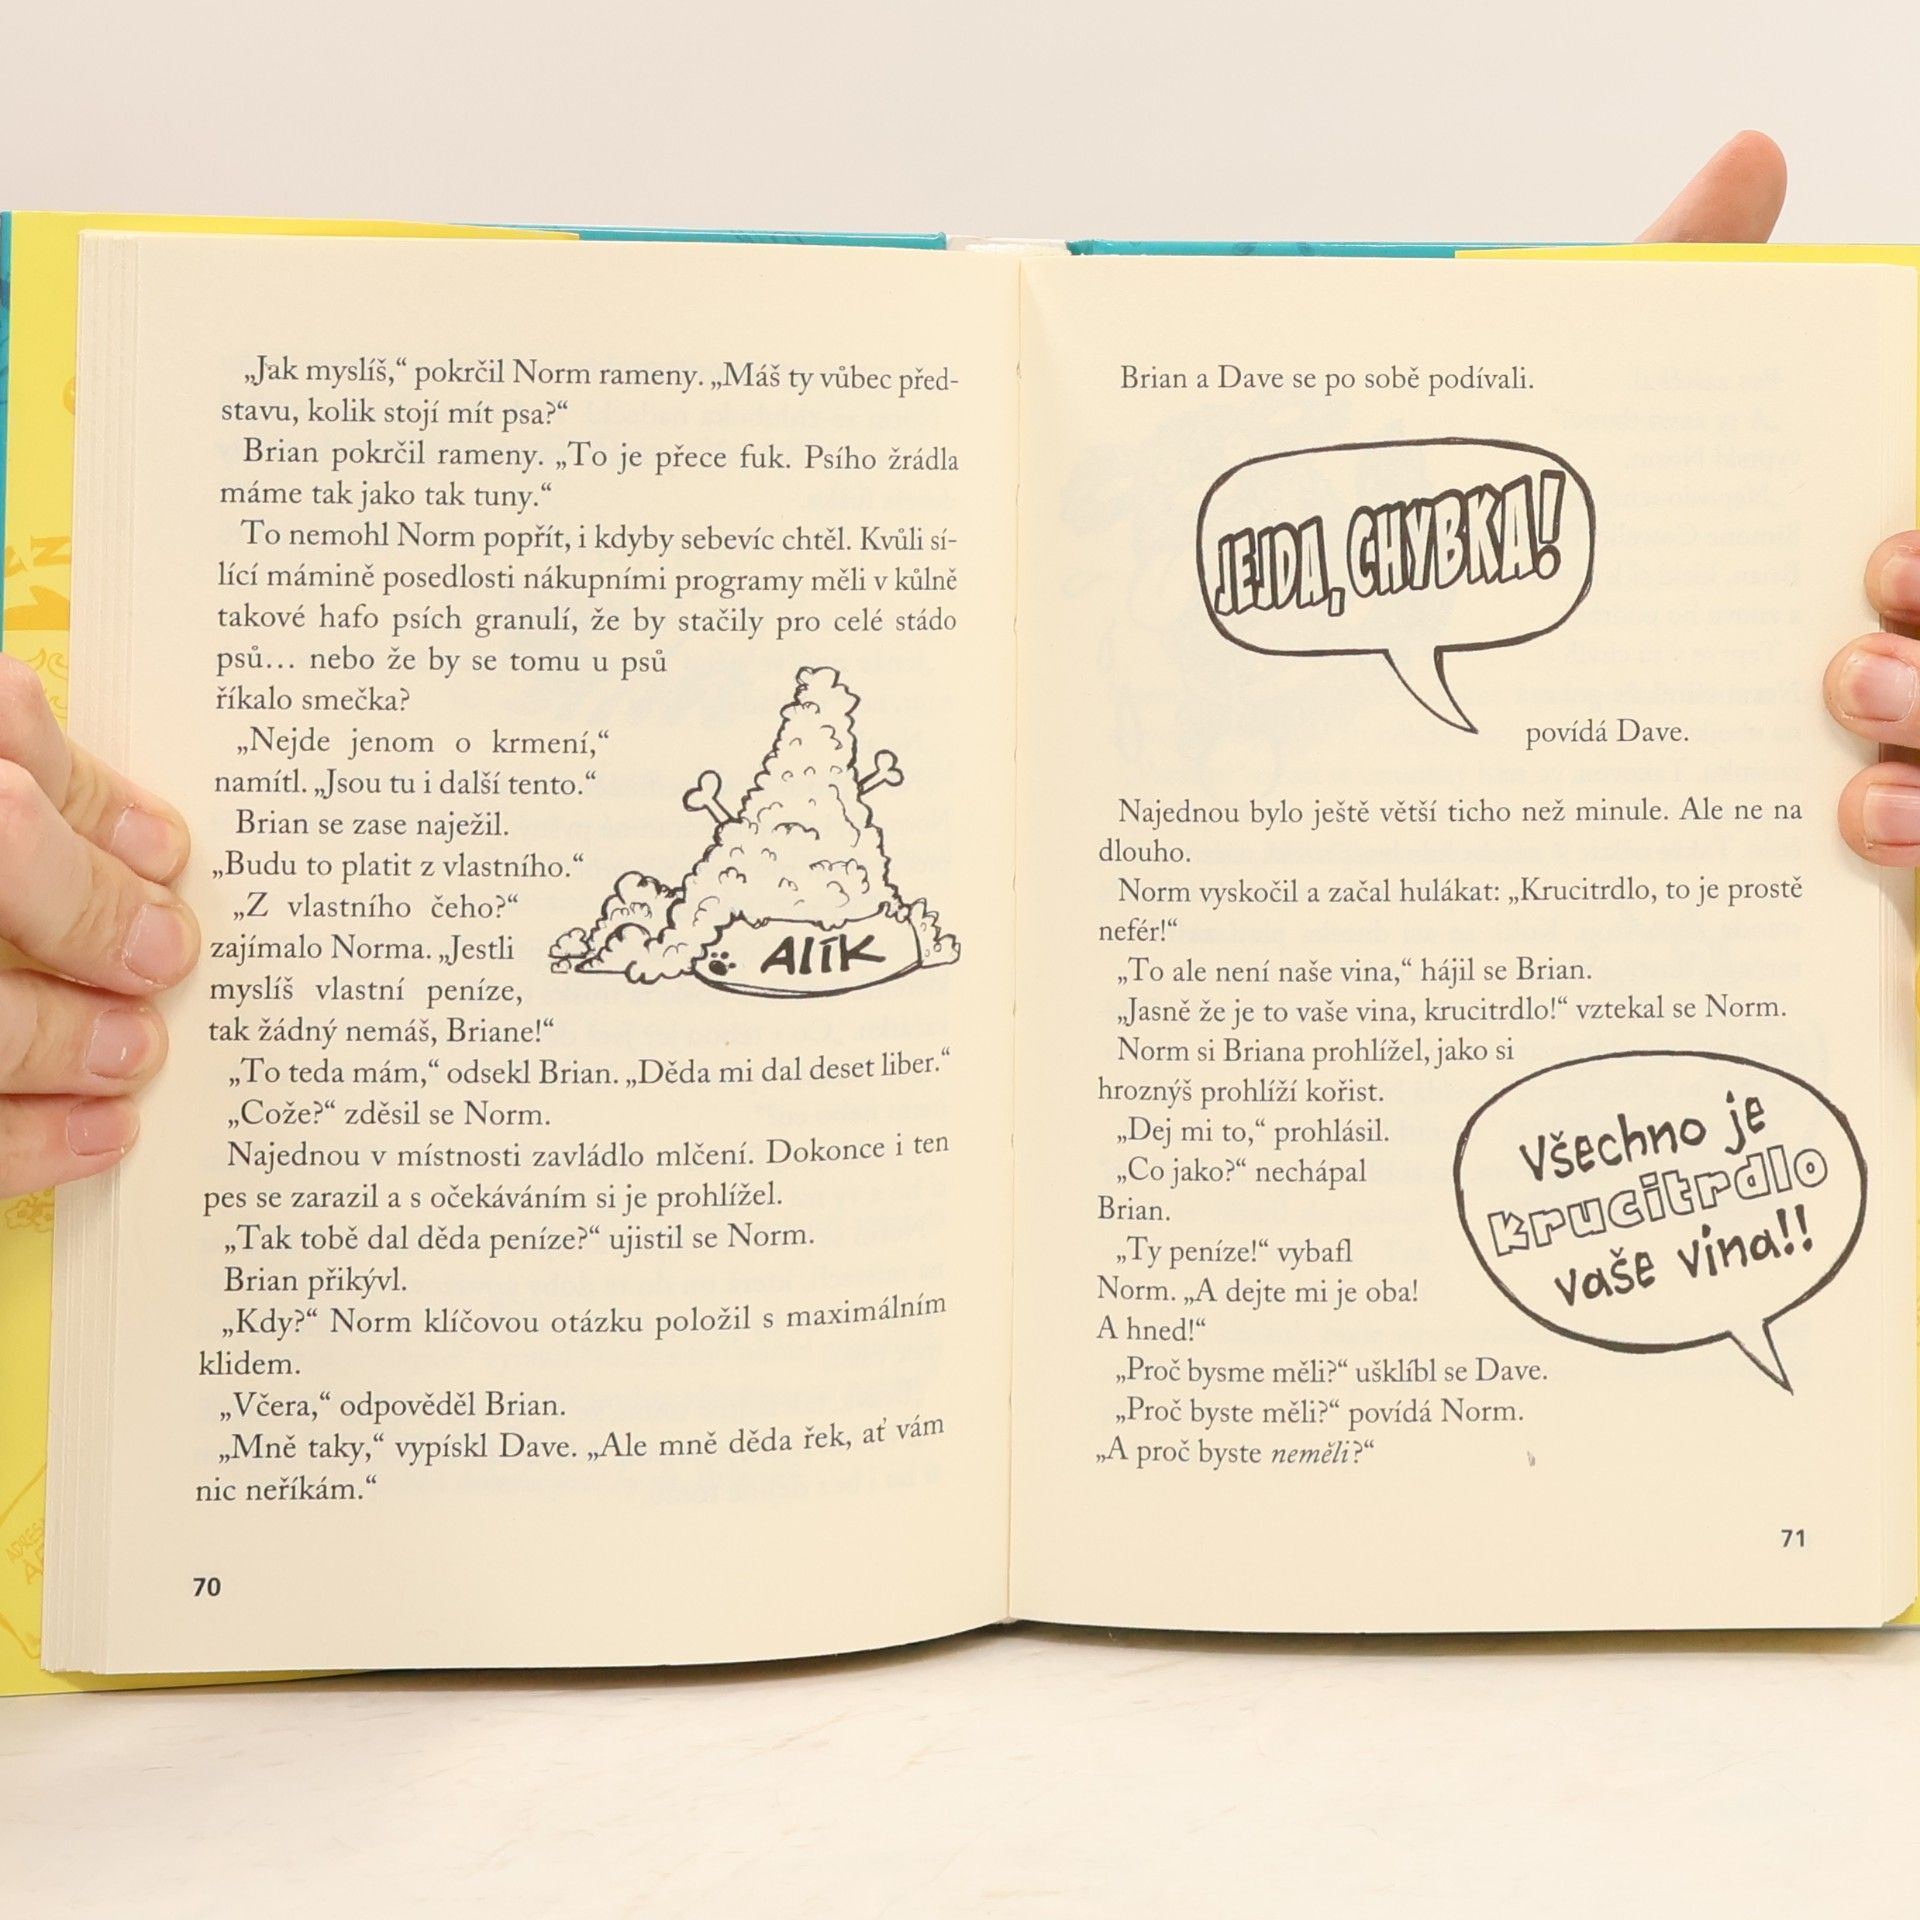 „Jak myslíš,“ pokrčil Norm rameny. „Máš ty vůbec před-
stavu, kolik stojí mít psa?“
Brian pokrčil rameny. „To je přece fuk. Psího žrádla
máme tak jako tak tuny.“
To nemohl Norm popřít, i kdyby sebevíc chtěl. Kvůli sí-
lící mámině posedlosti nákupními programy měli v kůlně
takové hafo psích granulí, že by stačily pro celé stádo
psů… nebo že by se tomu u psů
říkalo smečka?
„Nejde jenom o krmení,“
namítl. „Jsou tu i další tento.“
Brian se zase naježil.
„Budu to platit z vlastního.“
„Z vlastního čeho?“
zajímalo Norma. „Jestli
myslíš vlastní peníze,
tak žádný nemáš, Briane!“
ALÍK
„To teda mám,“ odsekl Brian. „Děda mi dal deset liber.“
„Cože?“ zděsil se Norm.
Najednou v místnosti zavládlo mlčení. Dokonce i ten
pes se zarazil a s očekáváním si je prohlížel.
„Tak tobě dal děda peníze?“ ujistil se Norm.
Brian přikývl.
„Kdy?“ Norm klíčovou otázku položil s maximálním
klidem.
„Včera,“ odpověděl Brian.
„Mně taky,“ vypískl Dave. „Ale mně děda řek, ať vám
nic neříkám.“
70
Brian a Dave se po sobě podívali.
JEJDA, CHYBKA!
povídá Dave.
Najednou bylo ještě větší ticho než minule. Ale ne na
dlouho.
Norm vyskočil a začal hulákat: „Krucitrdlo, to je prostě
nefér!“
„To ale není naše vina,“ hájil se Brian.
„Jasně že je to vaše vina, krucitrdlo!“ vztekal se Norm.
Norm si Briana prohlížel, jako si
hroznýš prohlíží kořist.
„Dej mi to,“ prohlásil.
„Co jako?“ nechápal
Brian.
„Ty peníze!“ vybafl
Norm. „A dejte mi je oba!
A hned!“
Všechno je
krucitrdlo
vaše vina!!
„Proč bysme měli?“ ušklíbl se Dave.
„Proč byste měli?“ povídá Norm.
„A proč byste neměli?“
71